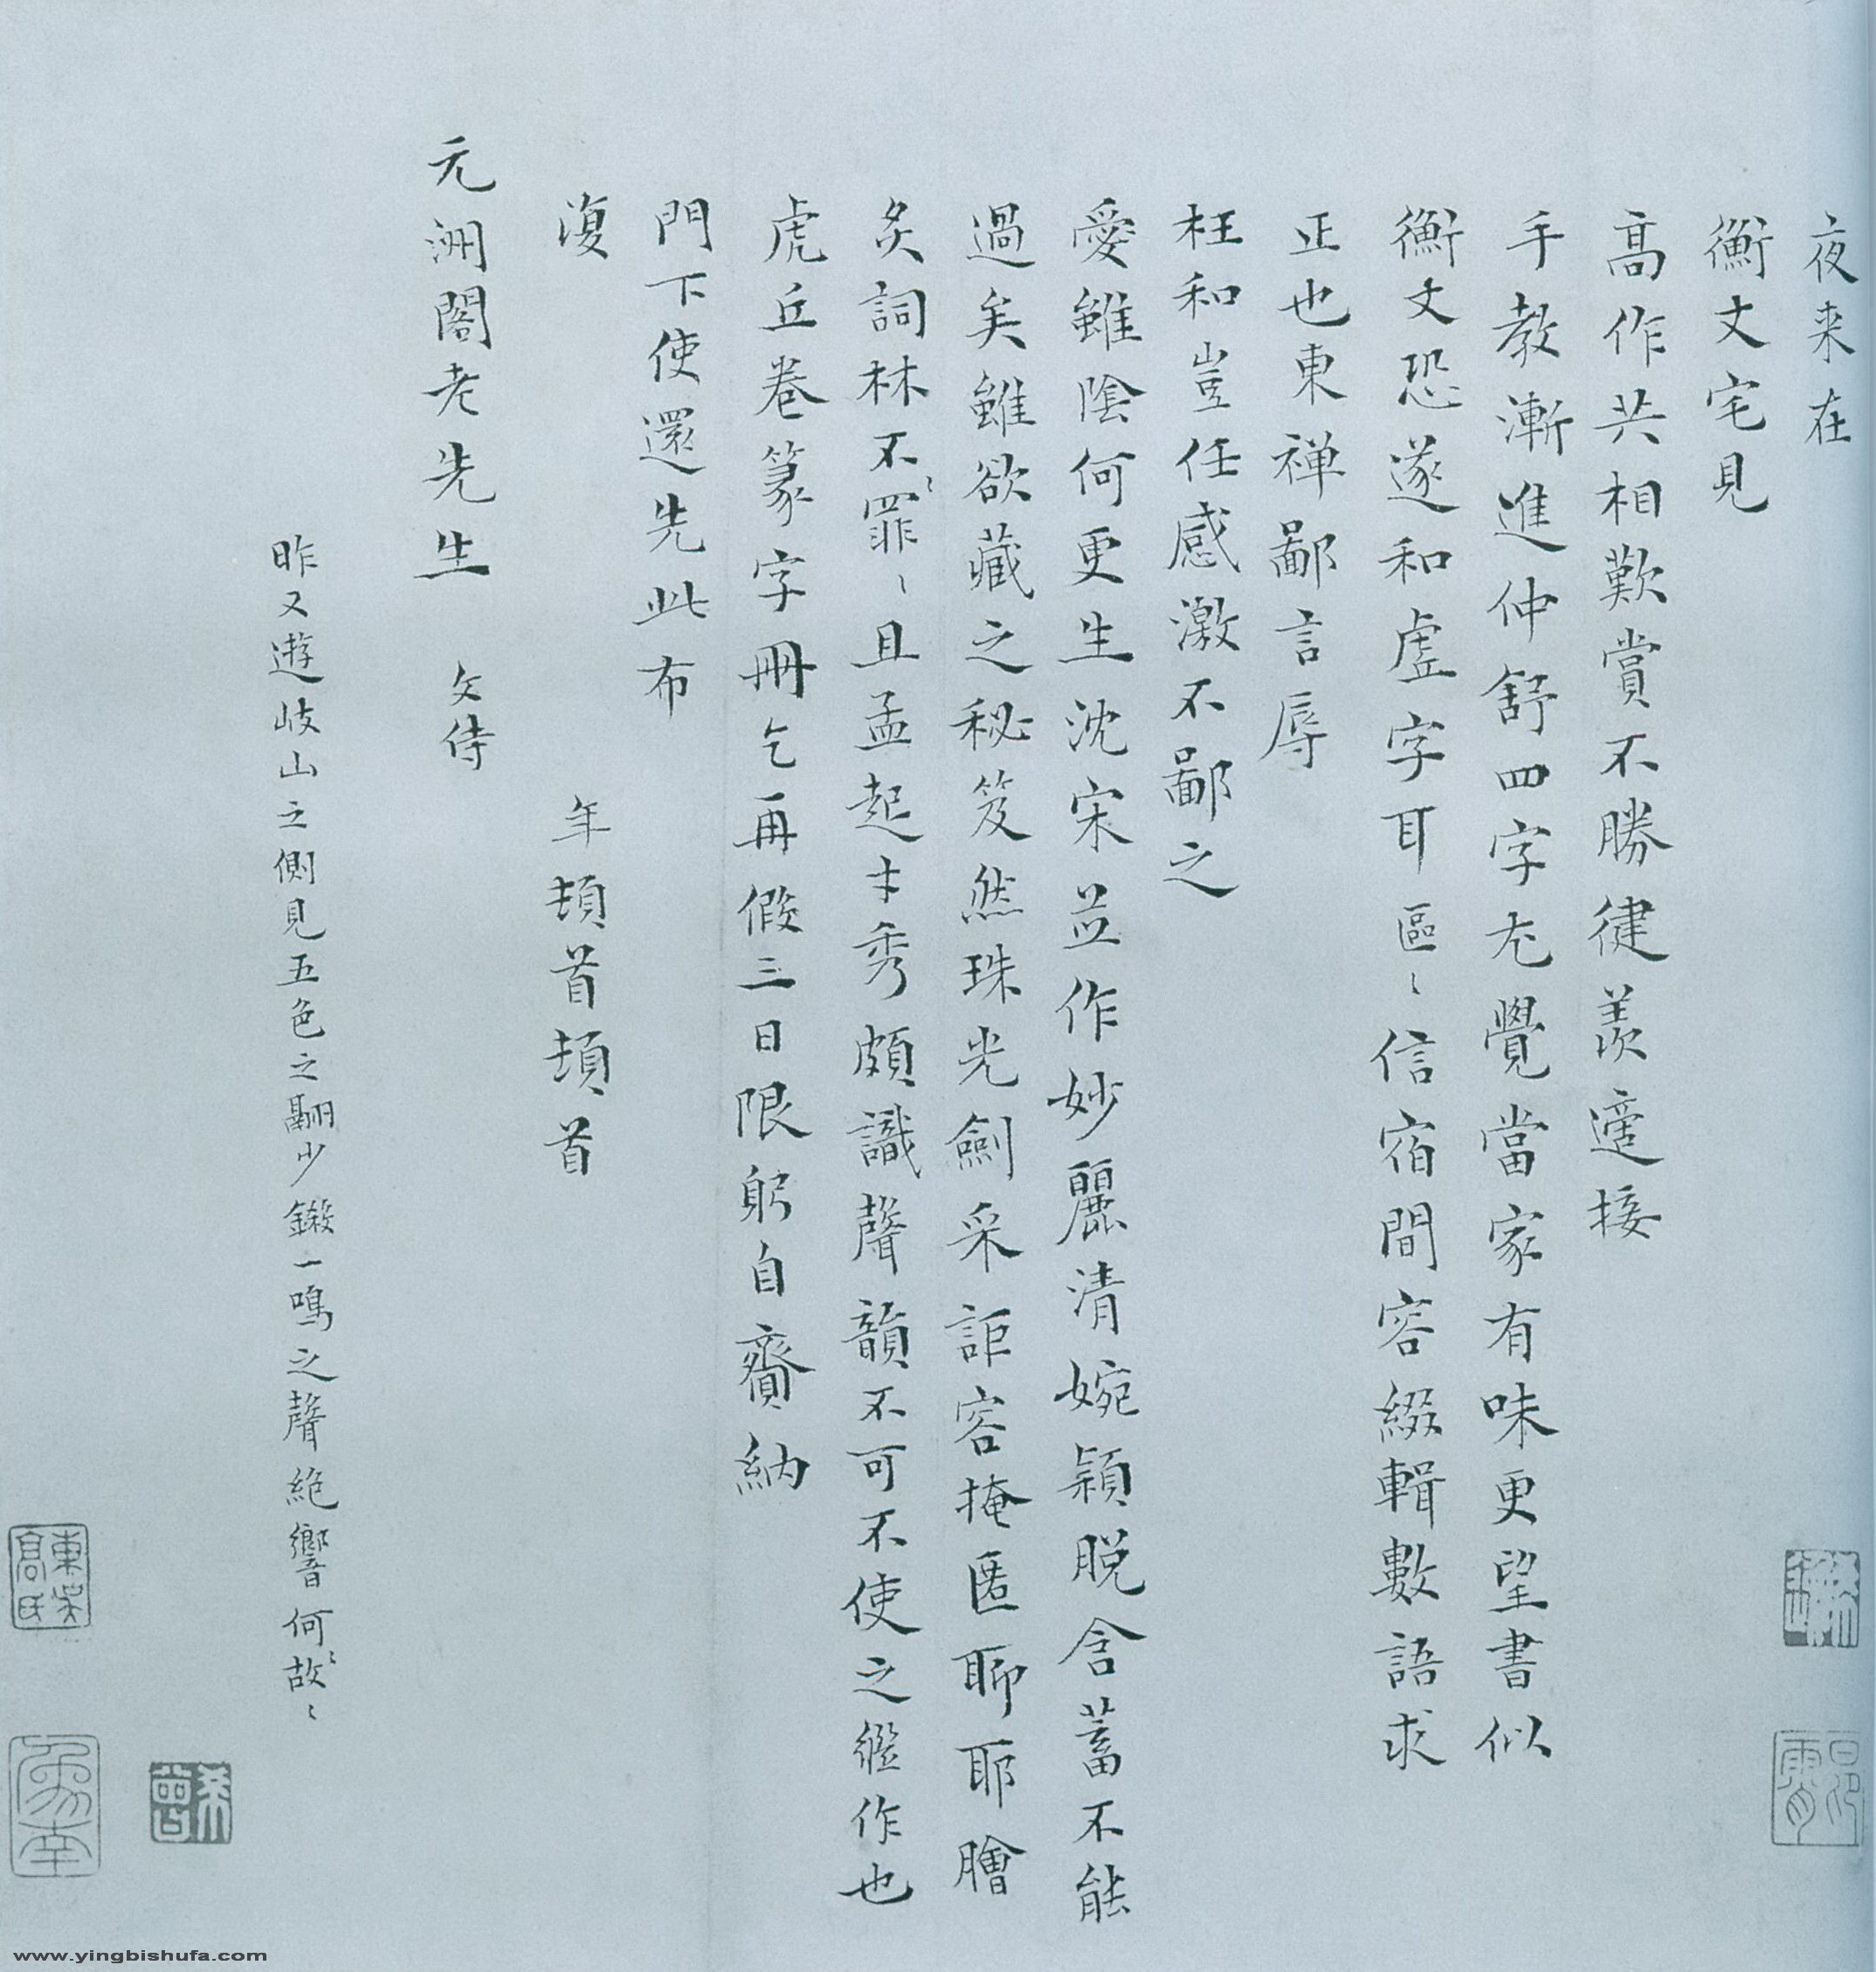 夜来在
衡丈宅見
高作共相歎賞不勝健羨適接
手教漸進仲舒四字尤覺當家有味更望書似
衡丈恐遂和虛字耳區〻信宿間容綴輯數語求
正也東禅鄙言辱
枉和豈任感激不鄙之
愛雖陰何更生沈宋並作妙麗清婉穎脱含蓄不能
過矣雖欲藏之秘笈然珠光劍采詎容掩匿聊耶膾
炙詞林不罪〻〻且孟起才秀頗識聲韻不可不使之繼作也
虎丘卷篆字冊乞再假三日限躬自齎納
門下使還先此布
復
年頓首頓首
元洲閣老先生
文侍
昨又遊岐山之側見五色之翮少鎩一鳴之聲絶響何故〻〻
東吳
高氏
www.yingbishufa.com